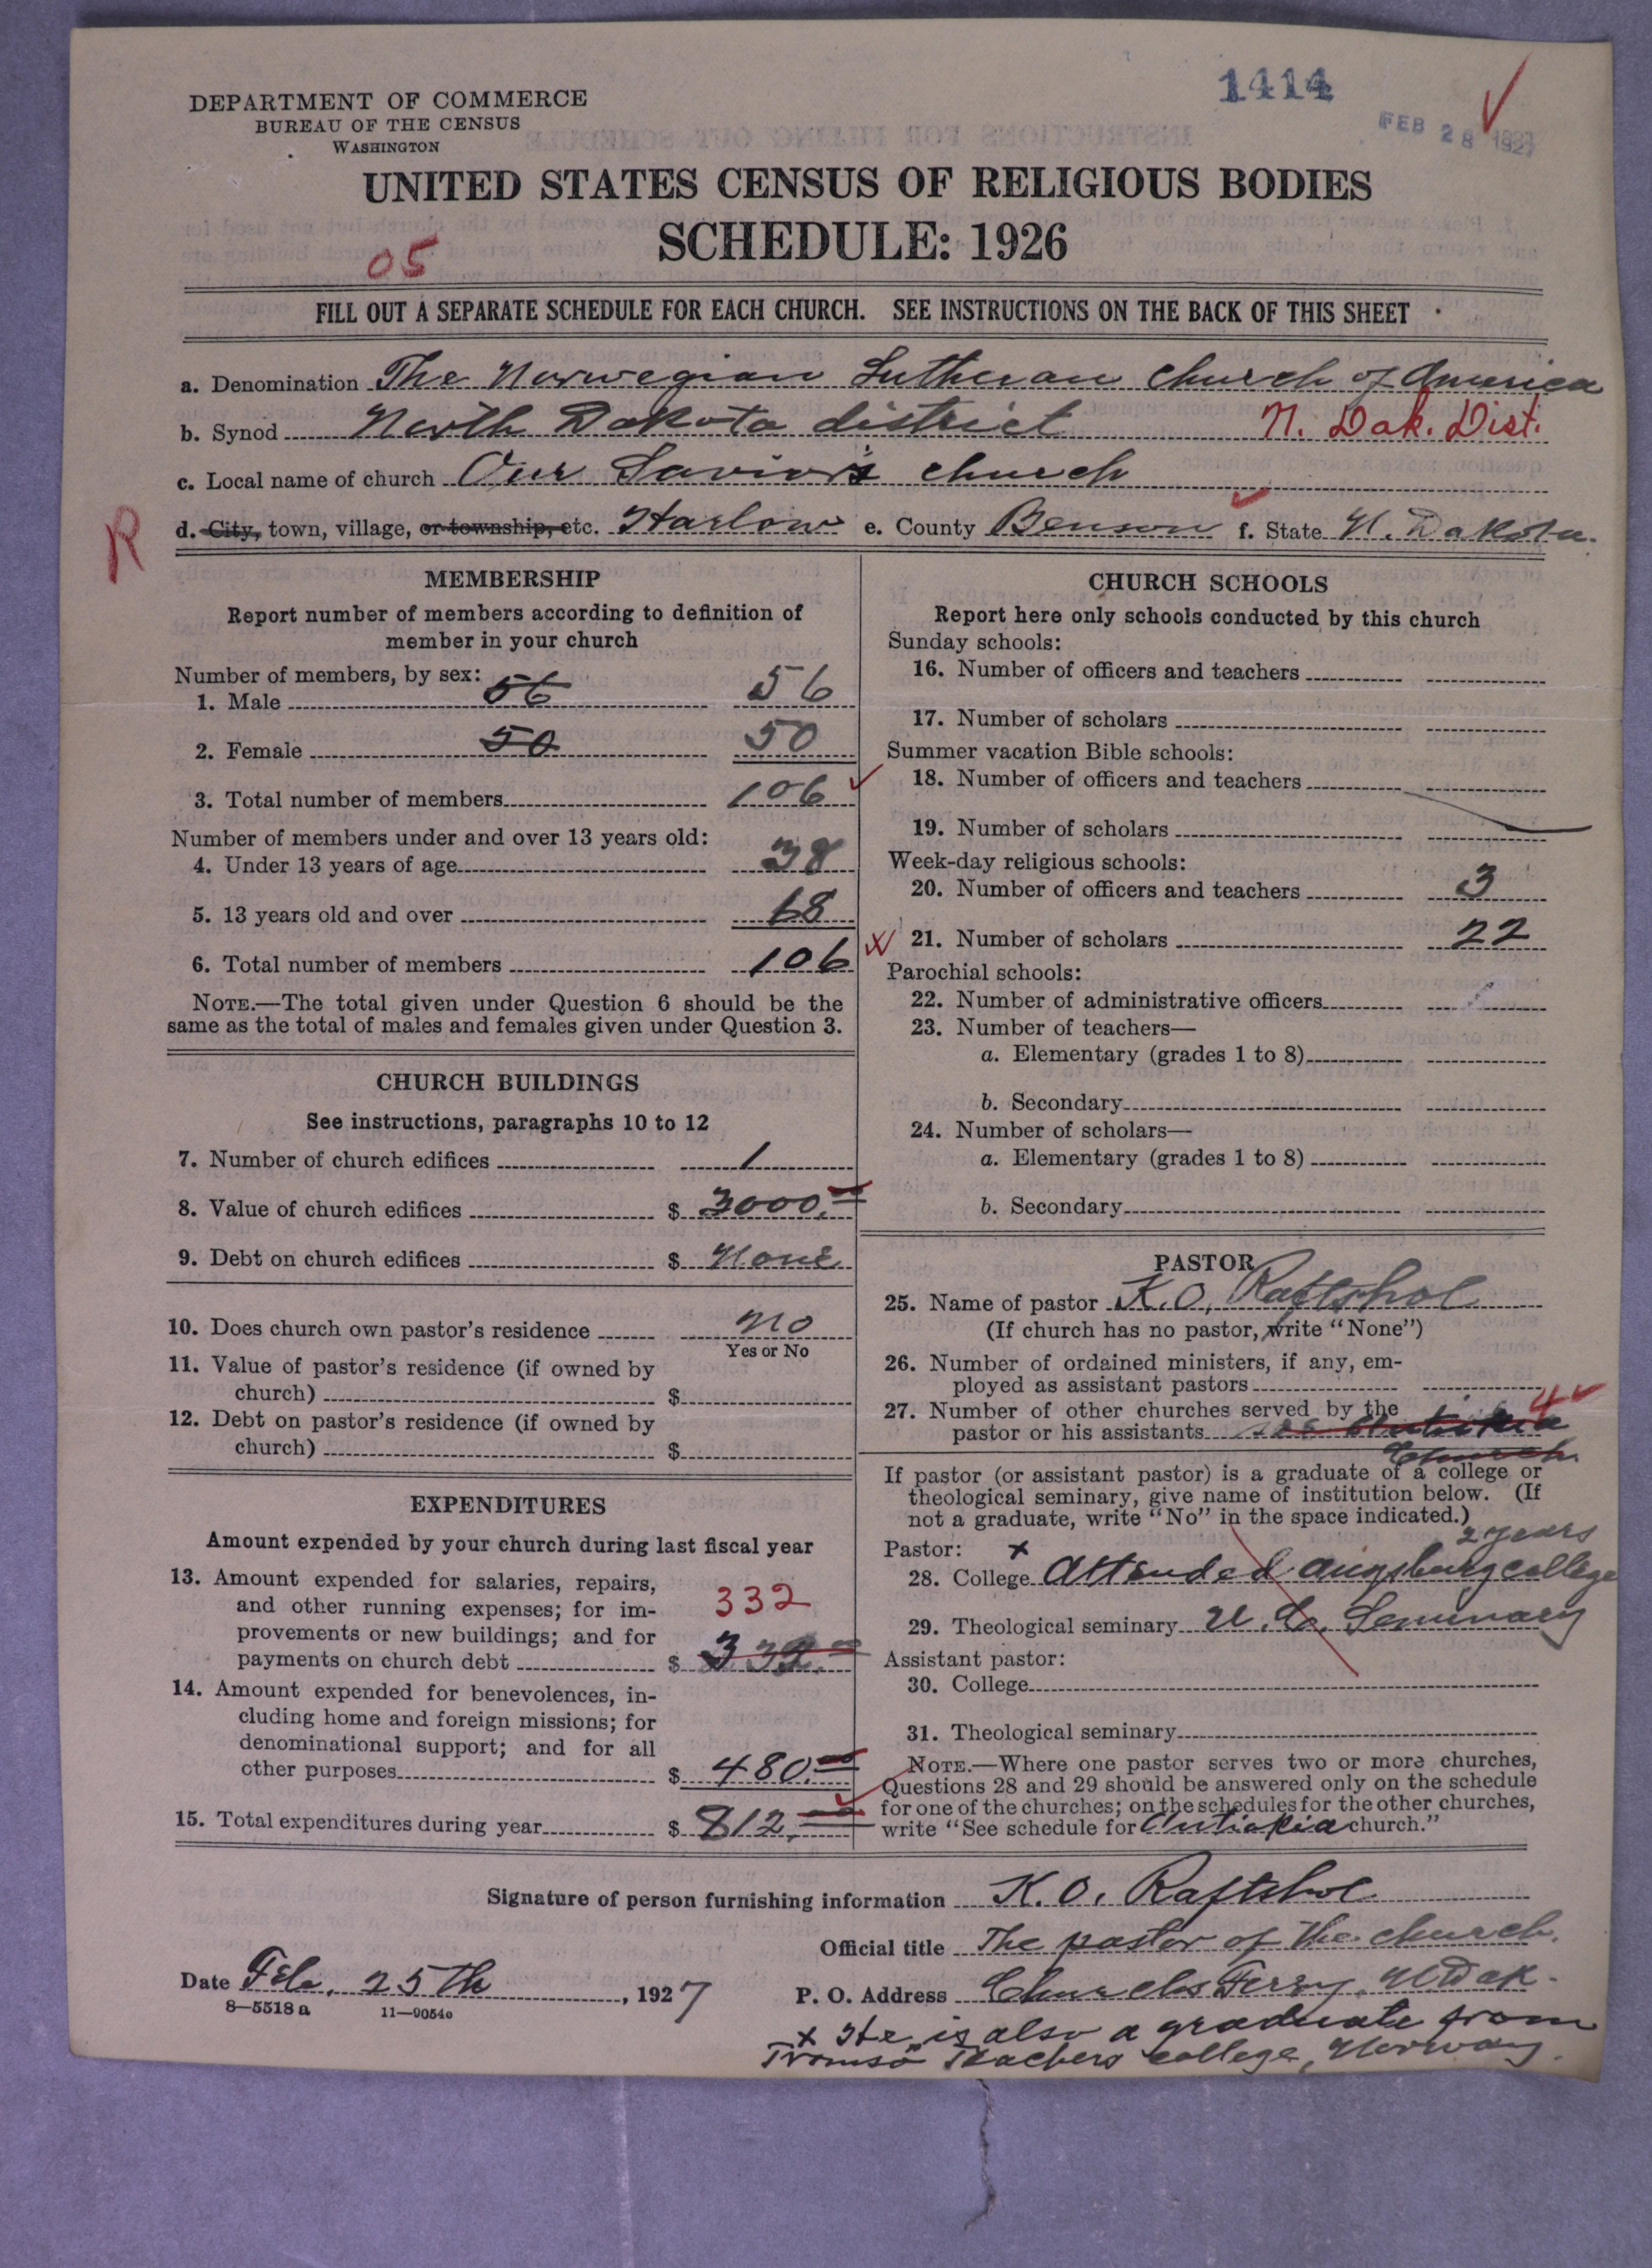 1414
FEB 28 1927
DEPARTMENT OF COMMERCE
BUREAU OF THE CENSUS
WASHINGTON
UNITED STATES CENSUS OF RELIGIOUS BODIES
SCHEDULE: 1926
05
FILL OUT A SEPARATE SCHEDULE FOR EACH CHURCH. SEE INSTRUCTIONS ON THE BACK OF THIS SHEET
a. Denomination The Norwegian Lutheran church of America
b. Synod North Dakota district N. Dak. Dist.
c. Local name of church Our Savior's church
R
d. City, town, village, or township, etc. Harlow e. County Benson f. State N. Dakota.
MEMBERSHIP
Report number of members according to definition of
member in your church
Number of members, by sex:
1. Male 56 56
2. Female 50 50
3. Total number of members 106
Number of members under and over 13 years old:
4. Under 13 years of age 38
5. 13 years old and over 68
6. Total number of members 106
NOTE.—The total given under Question 6 should be the
same as the total of males and females given under Question 3.
CHURCH BUILDINGS
See instructions, paragraphs 10 to 12
7. Number of church edifices 1
8. Value of church edifices $ 3000.00
9. Debt on church edifices $ None
10. Does church own pastor's residence No
Yes or No
11. Value of pastor's residence (if owned by
church) $
12. Debt on pastor's residence (if owned by
church) $
EXPENDITURES
Amount expended by your church during last fiscal year
13. Amount expended for salaries, repairs,
and other running expenses; for im-
332
provements or new buildings; and for
payments on church debt $ 332.00
14. Amount expended for benevolences, in-
cluding home and foreign missions; for
denominational support; and for all
other purposes $ 480.00
15. Total expenditures during year $ 812.00
CHURCH SCHOOLS
Report here only schools conducted by this church
Sunday schools:
16. Number of officers and teachers
17. Number of scholars
Summer vacation Bible schools:
18. Number of officers and teachers
19. Number of scholars
Week-day religious schools:
20. Number of officers and teachers 3
21. Number of scholars 22
Parochial schools:
22. Number of administrative officers
23. Number of teachers—
a. Elementary (grades 1 to 8)
b. Secondary
24. Number of scholars—
a. Elementary (grades 1 to 8)
b. Secondary
PASTOR
25. Name of pastor K.O. Raftshol
(If church has no pastor, write "None")
26. Number of ordained ministers, if any, em-
ployed as assistant pastors
27. Number of other churches served by the 4
pastor or his assistants see Antiokia
Church
If pastor (or assistant pastor) is a graduate of a college or
theological seminary, give name of institution below. (If
not a graduate, write "No" in the space indicated.)
2 years
Pastor: x
28. College Attended Augsburg college
29. Theological seminary U. Ch. Seminary
Assistant pastor:
30. College
31. Theological seminary
NOTE.—Where one pastor serves two or more churches,
Questions 28 and 29 should be answered only on the schedule
for one of the churches; on the schedules for the other churches,
write "See schedule for Antiokia church."
Signature of person furnishing information K.O. Raftshol
Official title The pastor of the church.
Date Feb. 25th, 1927
P. O. Address Churchs Ferry, N Dak.
8—5518 a 11—9054c
x He is also a graduate from
Tromsö Teachers college, Norway.